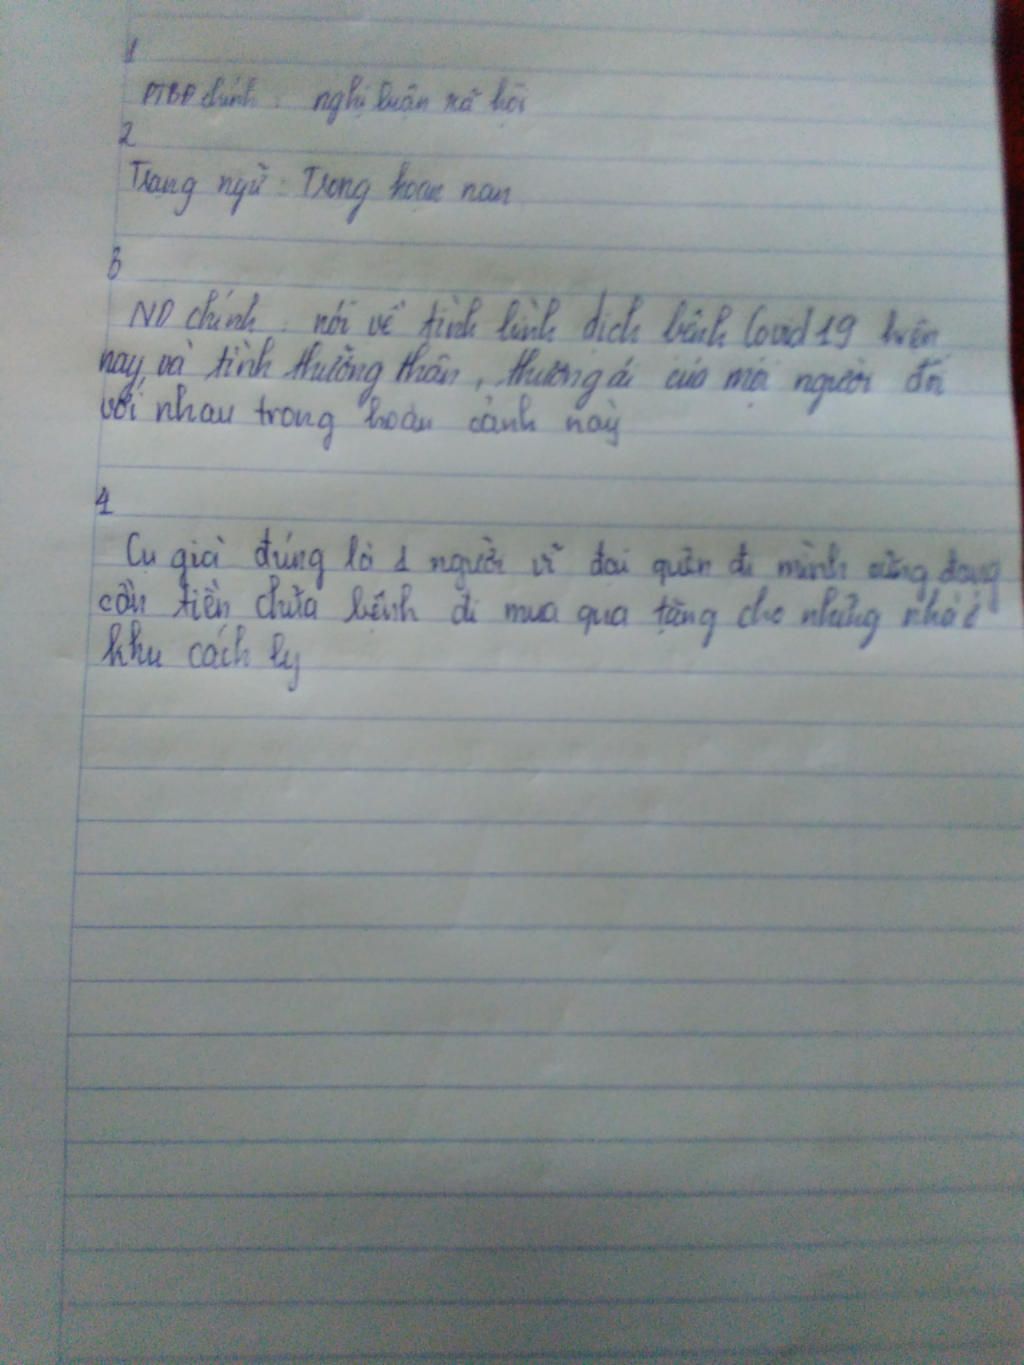 1
PTBĐ chính : nghị luận xã hội
2
Trạng ngữ : Trong hoạn nạn
3
ND chính : nói về tình hình dịch bệnh Covid 19 hiện
nay và tình thương thân, thương ái của mọi người đối
với nhau trong hoàn cảnh này
4
Cụ già đúng là 1 người vĩ đại quên đi mình cũng đang
cần tiền chữa bệnh đi mua quà tặng cho những nhà ở
khu cách ly